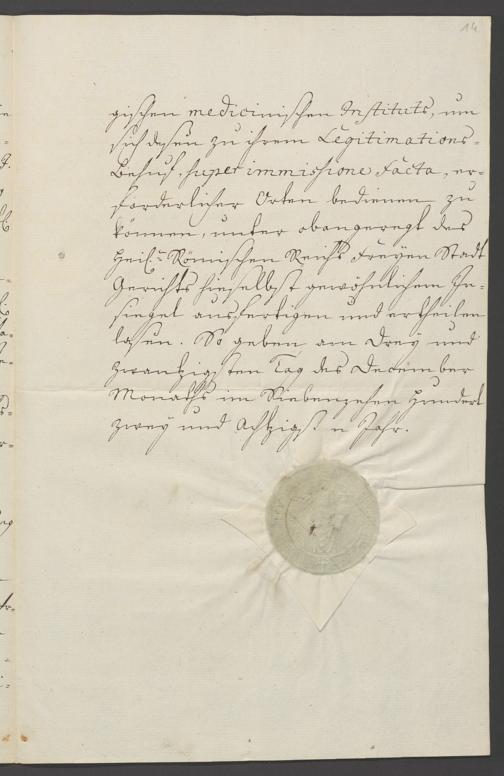 14
gischen medicinischen Instituts, um
sich deßen zu ihrem Legitimations-
Behuf, super immissione Facta, er-
forderlicher Orten bedienen zu
können, unter obangeregt des
Heil: Römischen Reichs Freyen Stadt
Gerichts hieselbst gewöhnlichem In-
siegel ausfertigen und ertheilen
laßen. So geben am Drey und
zwantzigsten Tag des December
Monaths im Siebenzehen Hundert
zwey und Achtzigsten Jahr.